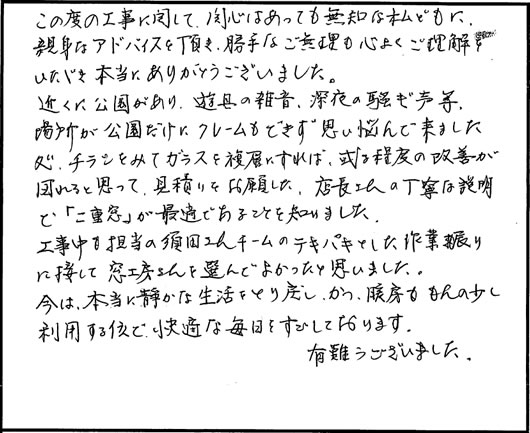 この度の工事に関して、関心はあっても無知な私どもに、
親身なアドバイスを頂き、勝手なご無理も心よくご理解を
いただき本当にありがとうございました。
近くに公園があり、遊具の雑音、深夜の騒ぎ声等、
場所が公園だけにクレームもできず思い悩んで来ました
が、チラシをみてガラスを複層にすれば、或る程度の改善が
図れると思って、見積りをお願した、店長さんの丁寧な説明
で「二重窓」が最適であることを知りました。
工事中も担当の須田さんチームのテキパキとした作業振り
に接して窓工房さんを選んでよかったと思いました。
今は、本当に静かな生活をとり戻し、かつ、暖房もほんの少し
利用する位で、快適な毎日をすごしております。
有難うございました。